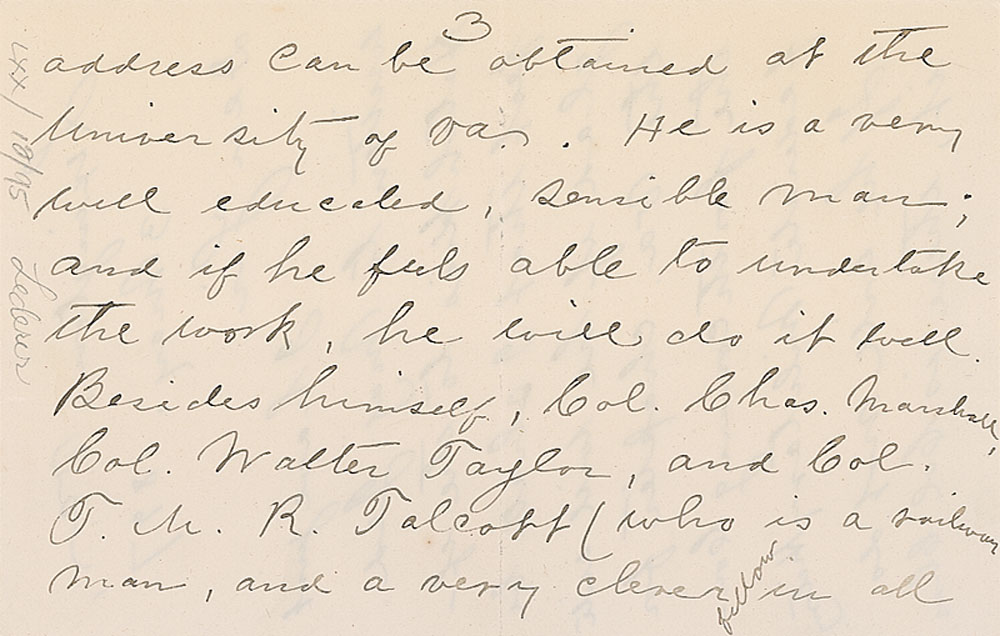 3
address can be obtained at the
University of Va. He is a very
well educated, sensible man;
and if he feels able to undertake
the work, he will do it well.
Besides himself, Col. Chas. Marshall,
Col. Walter Taylor, and Col.
T. M. R. Talcott (who is a railway
man, and a very clever fellow in all
LXX/10/95 Lederer